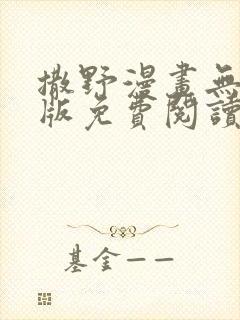 撒野漫畫無
版免費閱讀
基金——